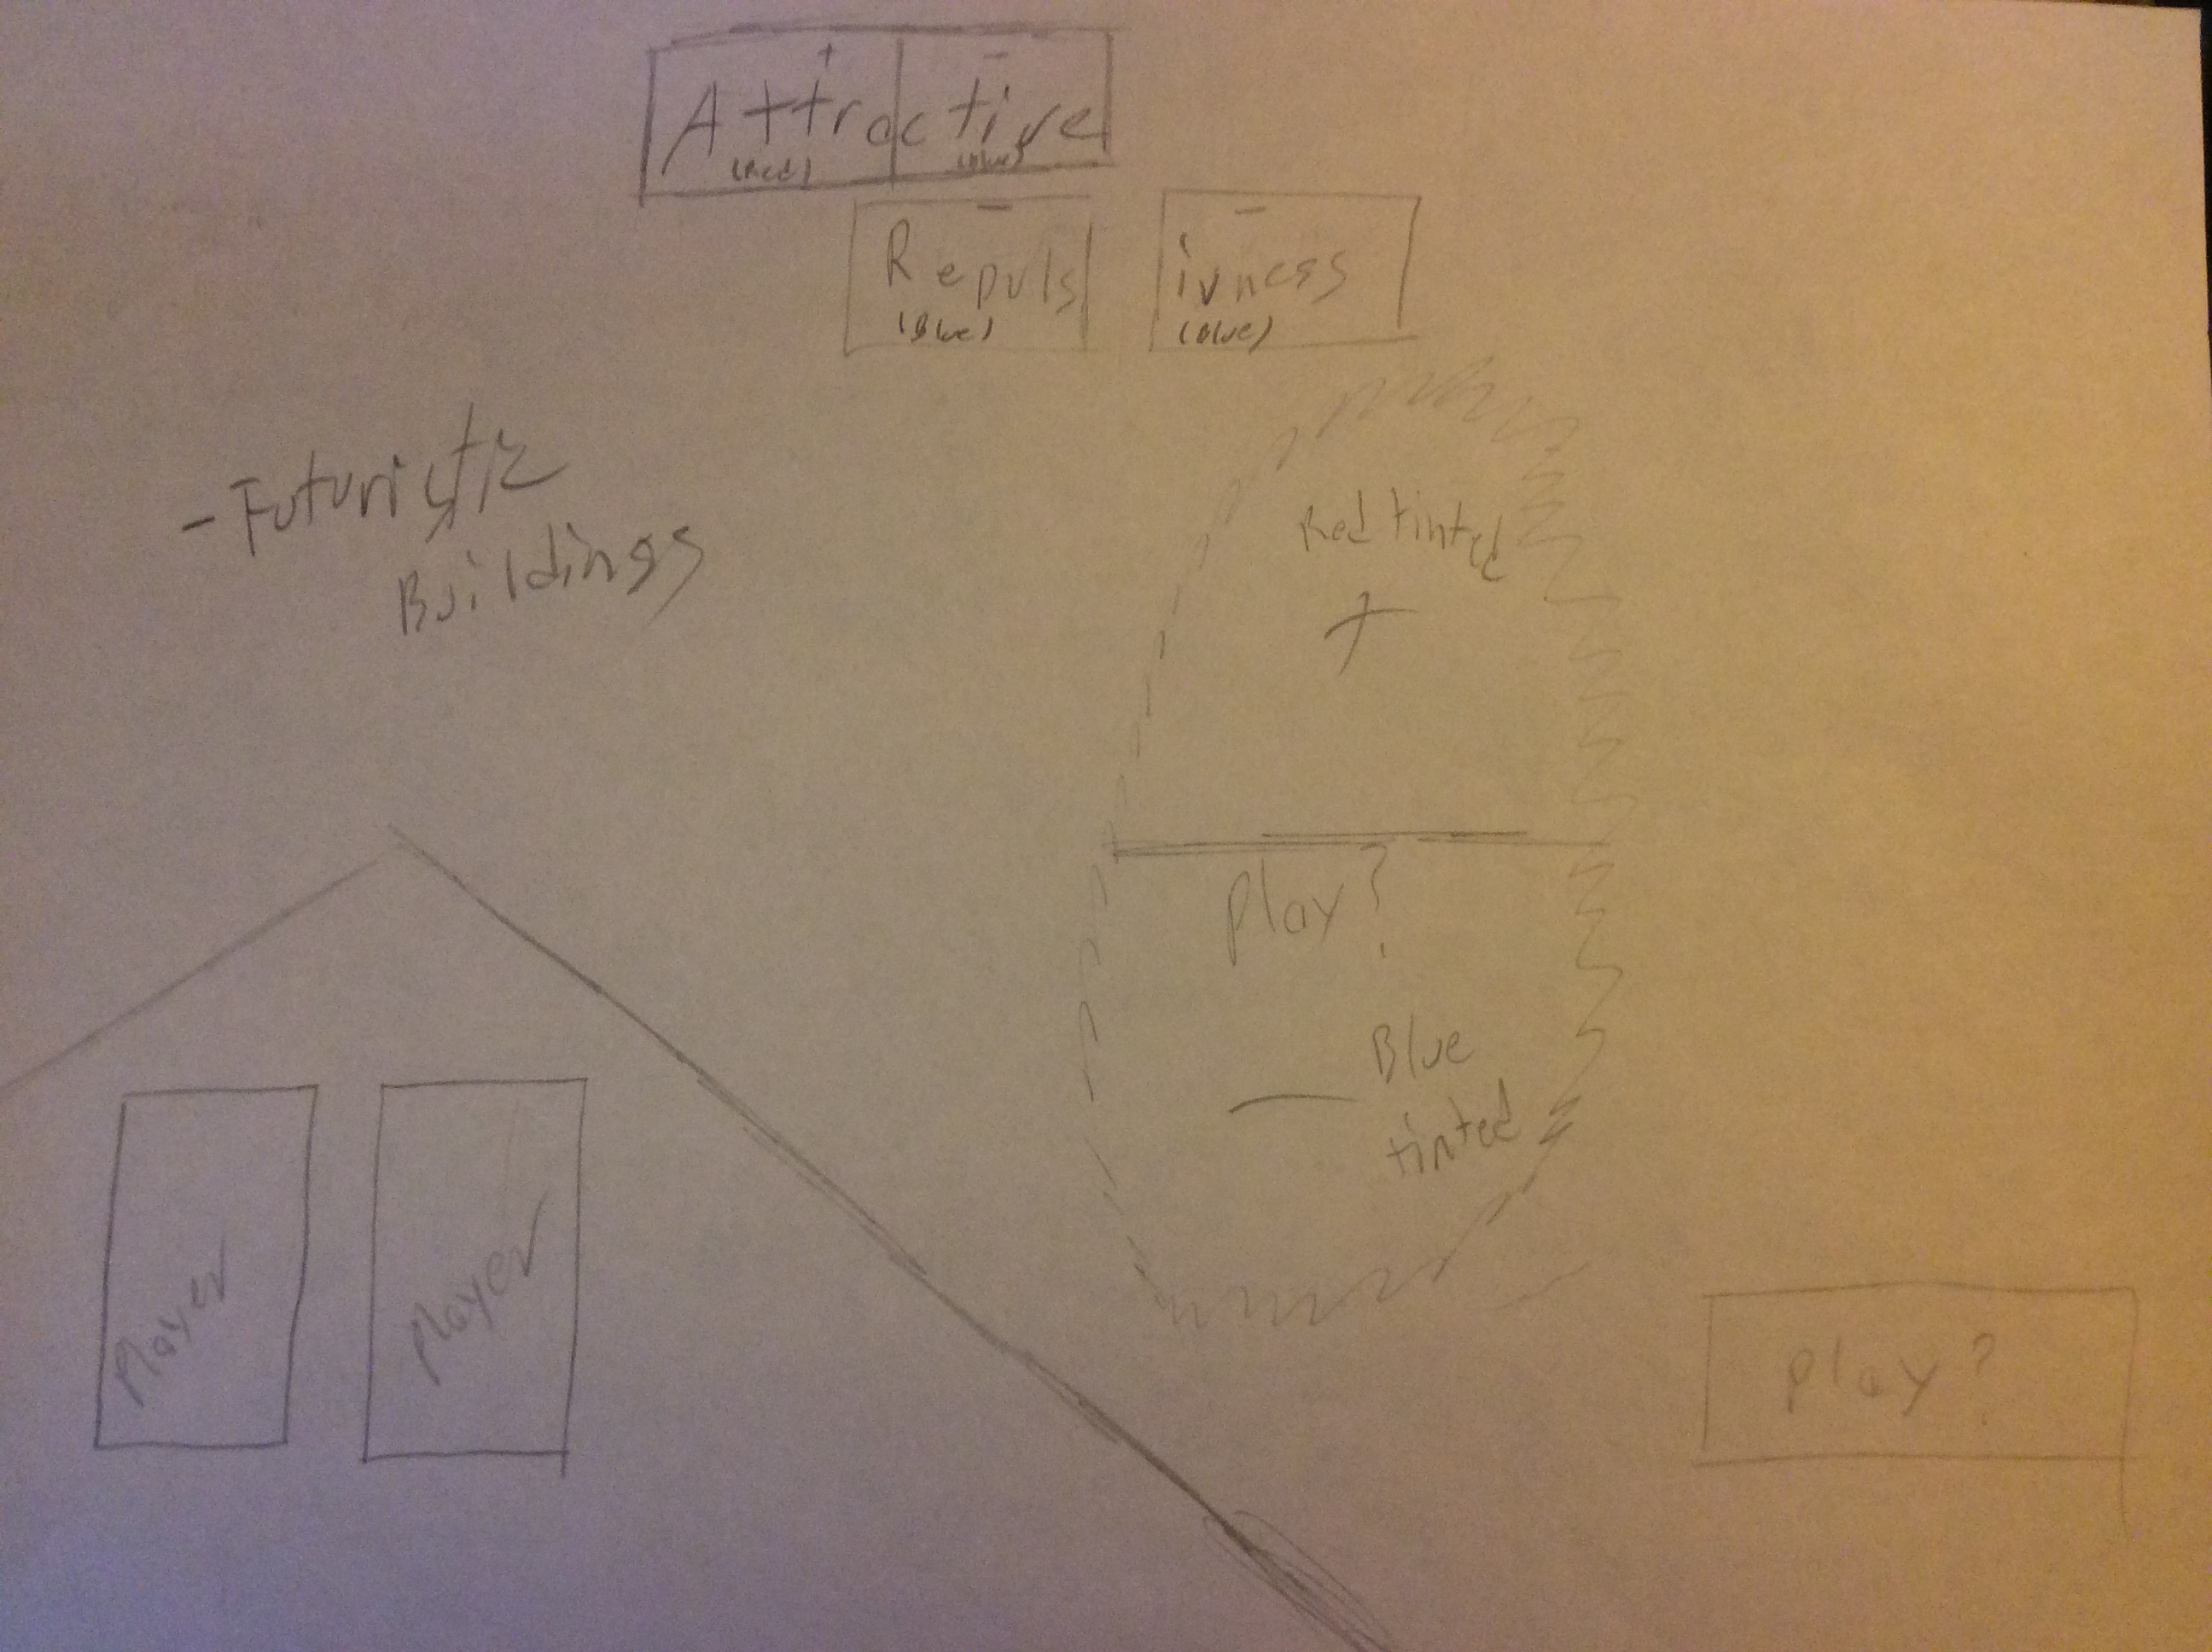 + -
Attractive
(Red) (Blue)
- -
Repuls ivness
(Blue) (Blue)
- Futuristic
Buildings
Red tinted
+
Play?
Blue
- tinted
Player Player
Play?